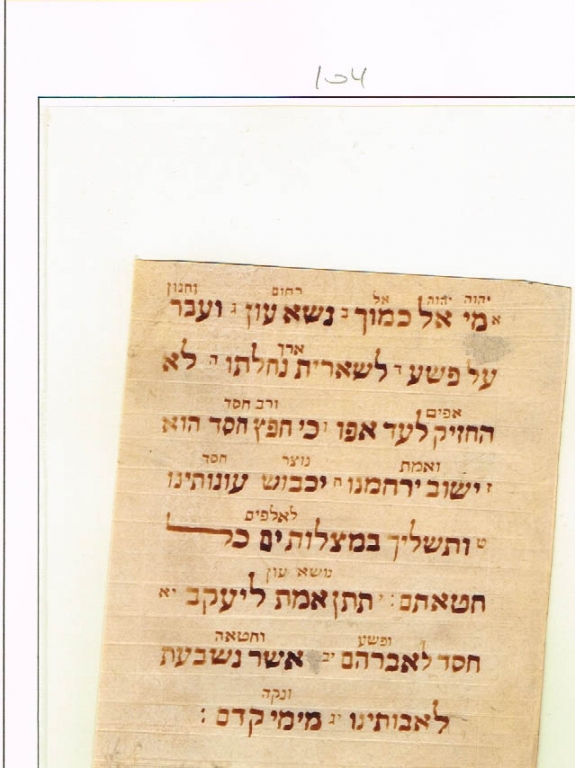 104
יהוה יהוה אל רחום וחנון
א מי אל כמוך ב נשא עון ג ועבר
ארך
על פשע ד לשארית נחלתו ה לא
אפים ורב חסד
החזיק לעד אפו ו כי חפץ חסד הוא
ואמת נוצר חסד
ז ישוב ירחמנו ח יכבוש עונותינו
לאלפים
ט ותשליך במצלותים כל
נושא עון
חטאתם: י תתן אמת ליעקב יא
ופשע וחטאה
חסד לאברהם יב אשר נשבעת
ונקה
לאבותינו יג מימי קדם :